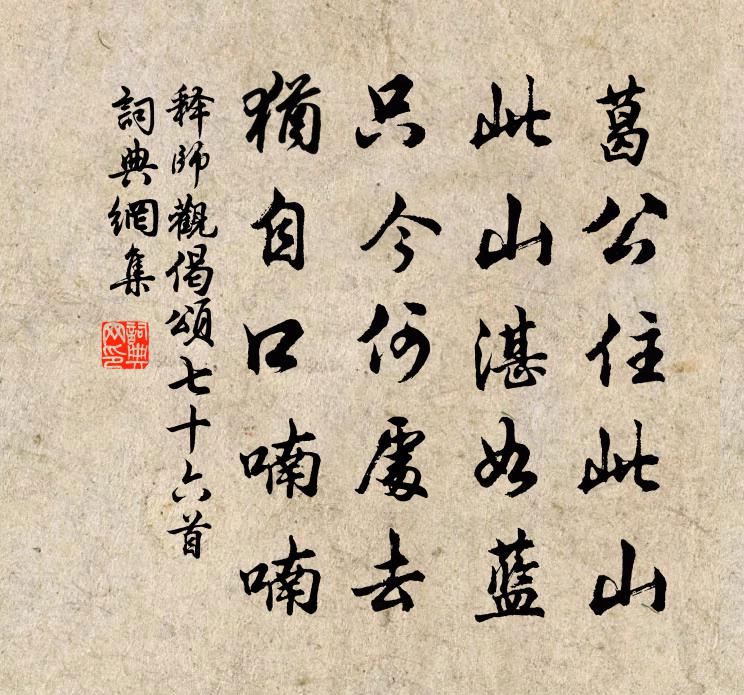 葛公住此山
此山湛如藍
只今何處去
猶自口喃喃
释師觀偈頌七十六首
詞典網集
詞典網印